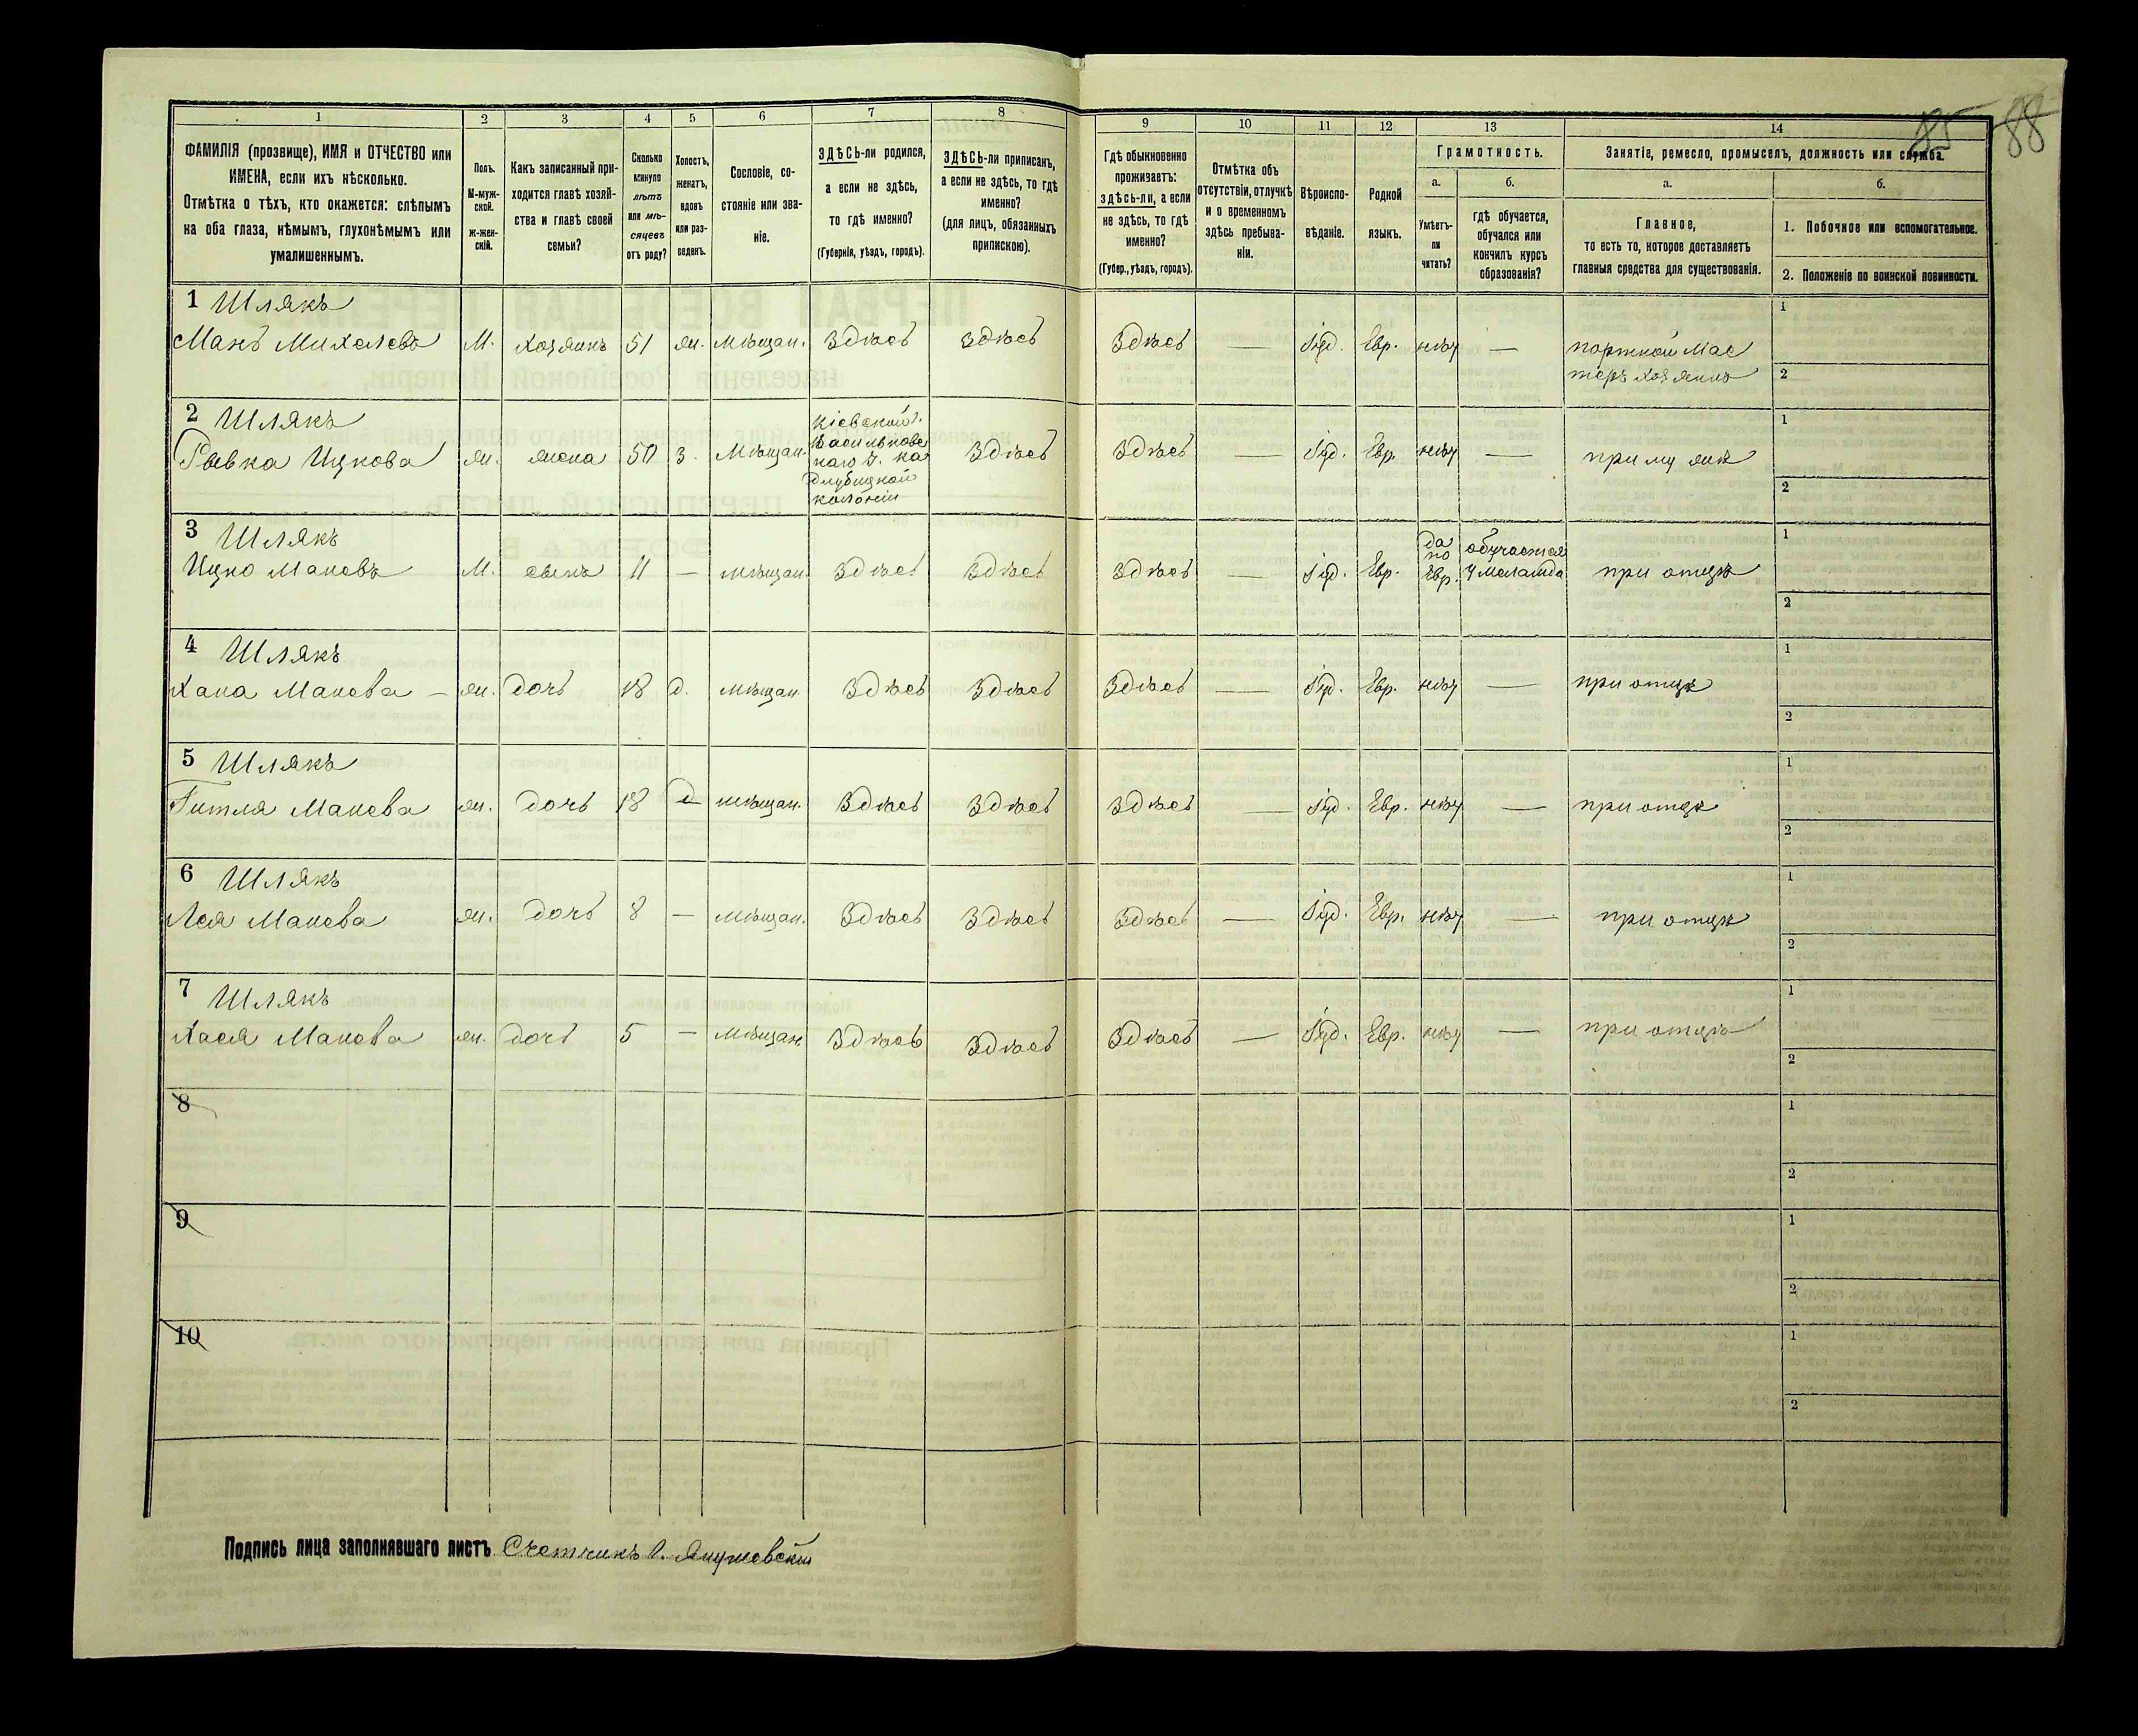 85 88
1 2 3 4 5 6 7 8 9 10 11 12 13 14
ФАМИЛІЯ (прозвище), ИМЯ и ОТЧЕСТВО или
ИМЕНА, если ихъ нѣсколько.
Отмѣтка о тѣхъ, кто окажется: слѣпымъ
на оба глаза, нѣмымъ, глухонѣмымъ или
умалишеннымъ.
Полъ.
М-муж-
ской.
ж-жен-
скій.
Какъ записанный при-
ходится главѣ хозяй-
ства и главѣ своей
семьи?
Сколько
минуло
лѣтъ
или мѣ-
сяцевъ
отъ роду?
Холостъ,
женатъ,
вдовъ
или раз-
веденъ.
Сословіе, со-
стояніе или зва-
ніе.
ЗДѢСЬ-ли родился,
а если не здѣсь,
то гдѣ именно?
(Губернія, уѣздъ, городъ).
ЗДѢСЬ-ли приписанъ,
а если не здѣсь, то гдѣ
именно?
(для лицъ, обязанныхъ
припискою).
Гдѣ обыкновенно
проживаетъ:
здѣсь-ли, а если
не здѣсь, то гдѣ
именно?
(Губер., уѣздъ, городъ).
Отмѣтка объ
отсутствіи, отлучкѣ
и о временномъ
здѣсь пребыва-
ніи.
Вѣроиспо-
вѣданіе.
Родной
языкъ.
Грамотность.
а.
Умѣетъ-
ли
читать?
б.
гдѣ обучается,
обучался или
кончилъ курсъ
образованія?
Занятіе, ремесло, промыселъ, должность или служба.
а.
Главное,
то есть то, которое доставляетъ
главныя средства для существованія.
б.
1. Побочное или вспомогательное.
2. Положеніе по воинской повинности.
1 Шлякъ
Манъ Михелевъ М. хозяинъ 51 жн. мѣщан. Здѣсь Здѣсь Здѣсь — Іуд. Евр. нѣт — портной мас
теръ хозяинъ
1
2
2 Шлякъ
Рывка Ицкова жн. жена 50 з. мѣщан. Кіевской г.
Васильковс
каго у. на
колоніи
Здѣсь Здѣсь — Іуд. Евр. нѣт — при мужѣ
1
2
3 Шлякъ
Ицко Маневъ М. сынъ 11 — мѣщан. Здѣсь Здѣсь Здѣсь — Іуд. Евр. да
по
Евр.
обучается
у меламда
при отцѣ
1
2
4 Шлякъ
Хана Манева — жн. дочь 18 д. мѣщан. Здѣсь Здѣсь Здѣсь — Іуд. Евр. нѣт — при отцѣ
1
2
5 Шлякъ
Гитля Манева жн. дочь 18 д мѣщан. Здѣсь Здѣсь Здѣсь — Іуд. Евр. нѣт — при отцѣ
1
2
6 Шлякъ
Лея Манева жн. дочь 8 — мѣщан. Здѣсь Здѣсь Здѣсь — Іуд. Евр. нѣт — при отцѣ
1
2
7 Шлякъ
Хася Манева жн. дочь 5 — мѣщан. Здѣсь Здѣсь Здѣсь — Іуд. Евр. нѣт — при отцѣ
1
2
8
1
2
9
1
2
10
1
2
Подпись лица заполнявшаго листъ Счетчикъ